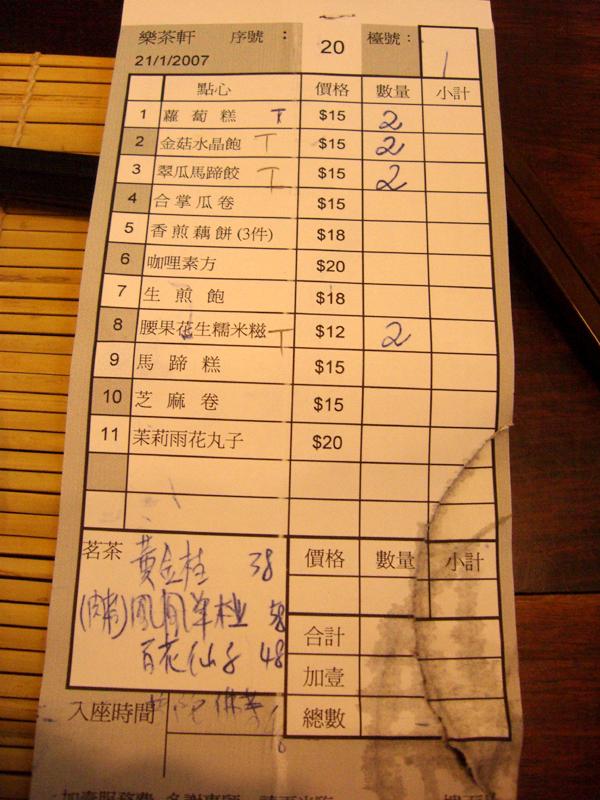 樂茶軒 序號： 20 檯號： 1
21/1/2007
點心 價格 數量 小計
1 蘿蔔糕 T $15 2
2 金菇水晶飽 T $15 2
3 翠瓜馬蹄餃 T $15 2
4 合掌瓜卷 $15
5 香煎藕餅(3件) $18
6 咖哩素方 $20
7 生煎飽 $18
8 腰果花生糯米糍 T $12 2
9 馬蹄糕 $15
10 芝麻卷 $15
11 茉莉雨花丸子 $20
茗茶 價格 數量 小計
黃金桂 38
鳳凰單樅
百花仙子 48
合計
加壹
總數
入座時間